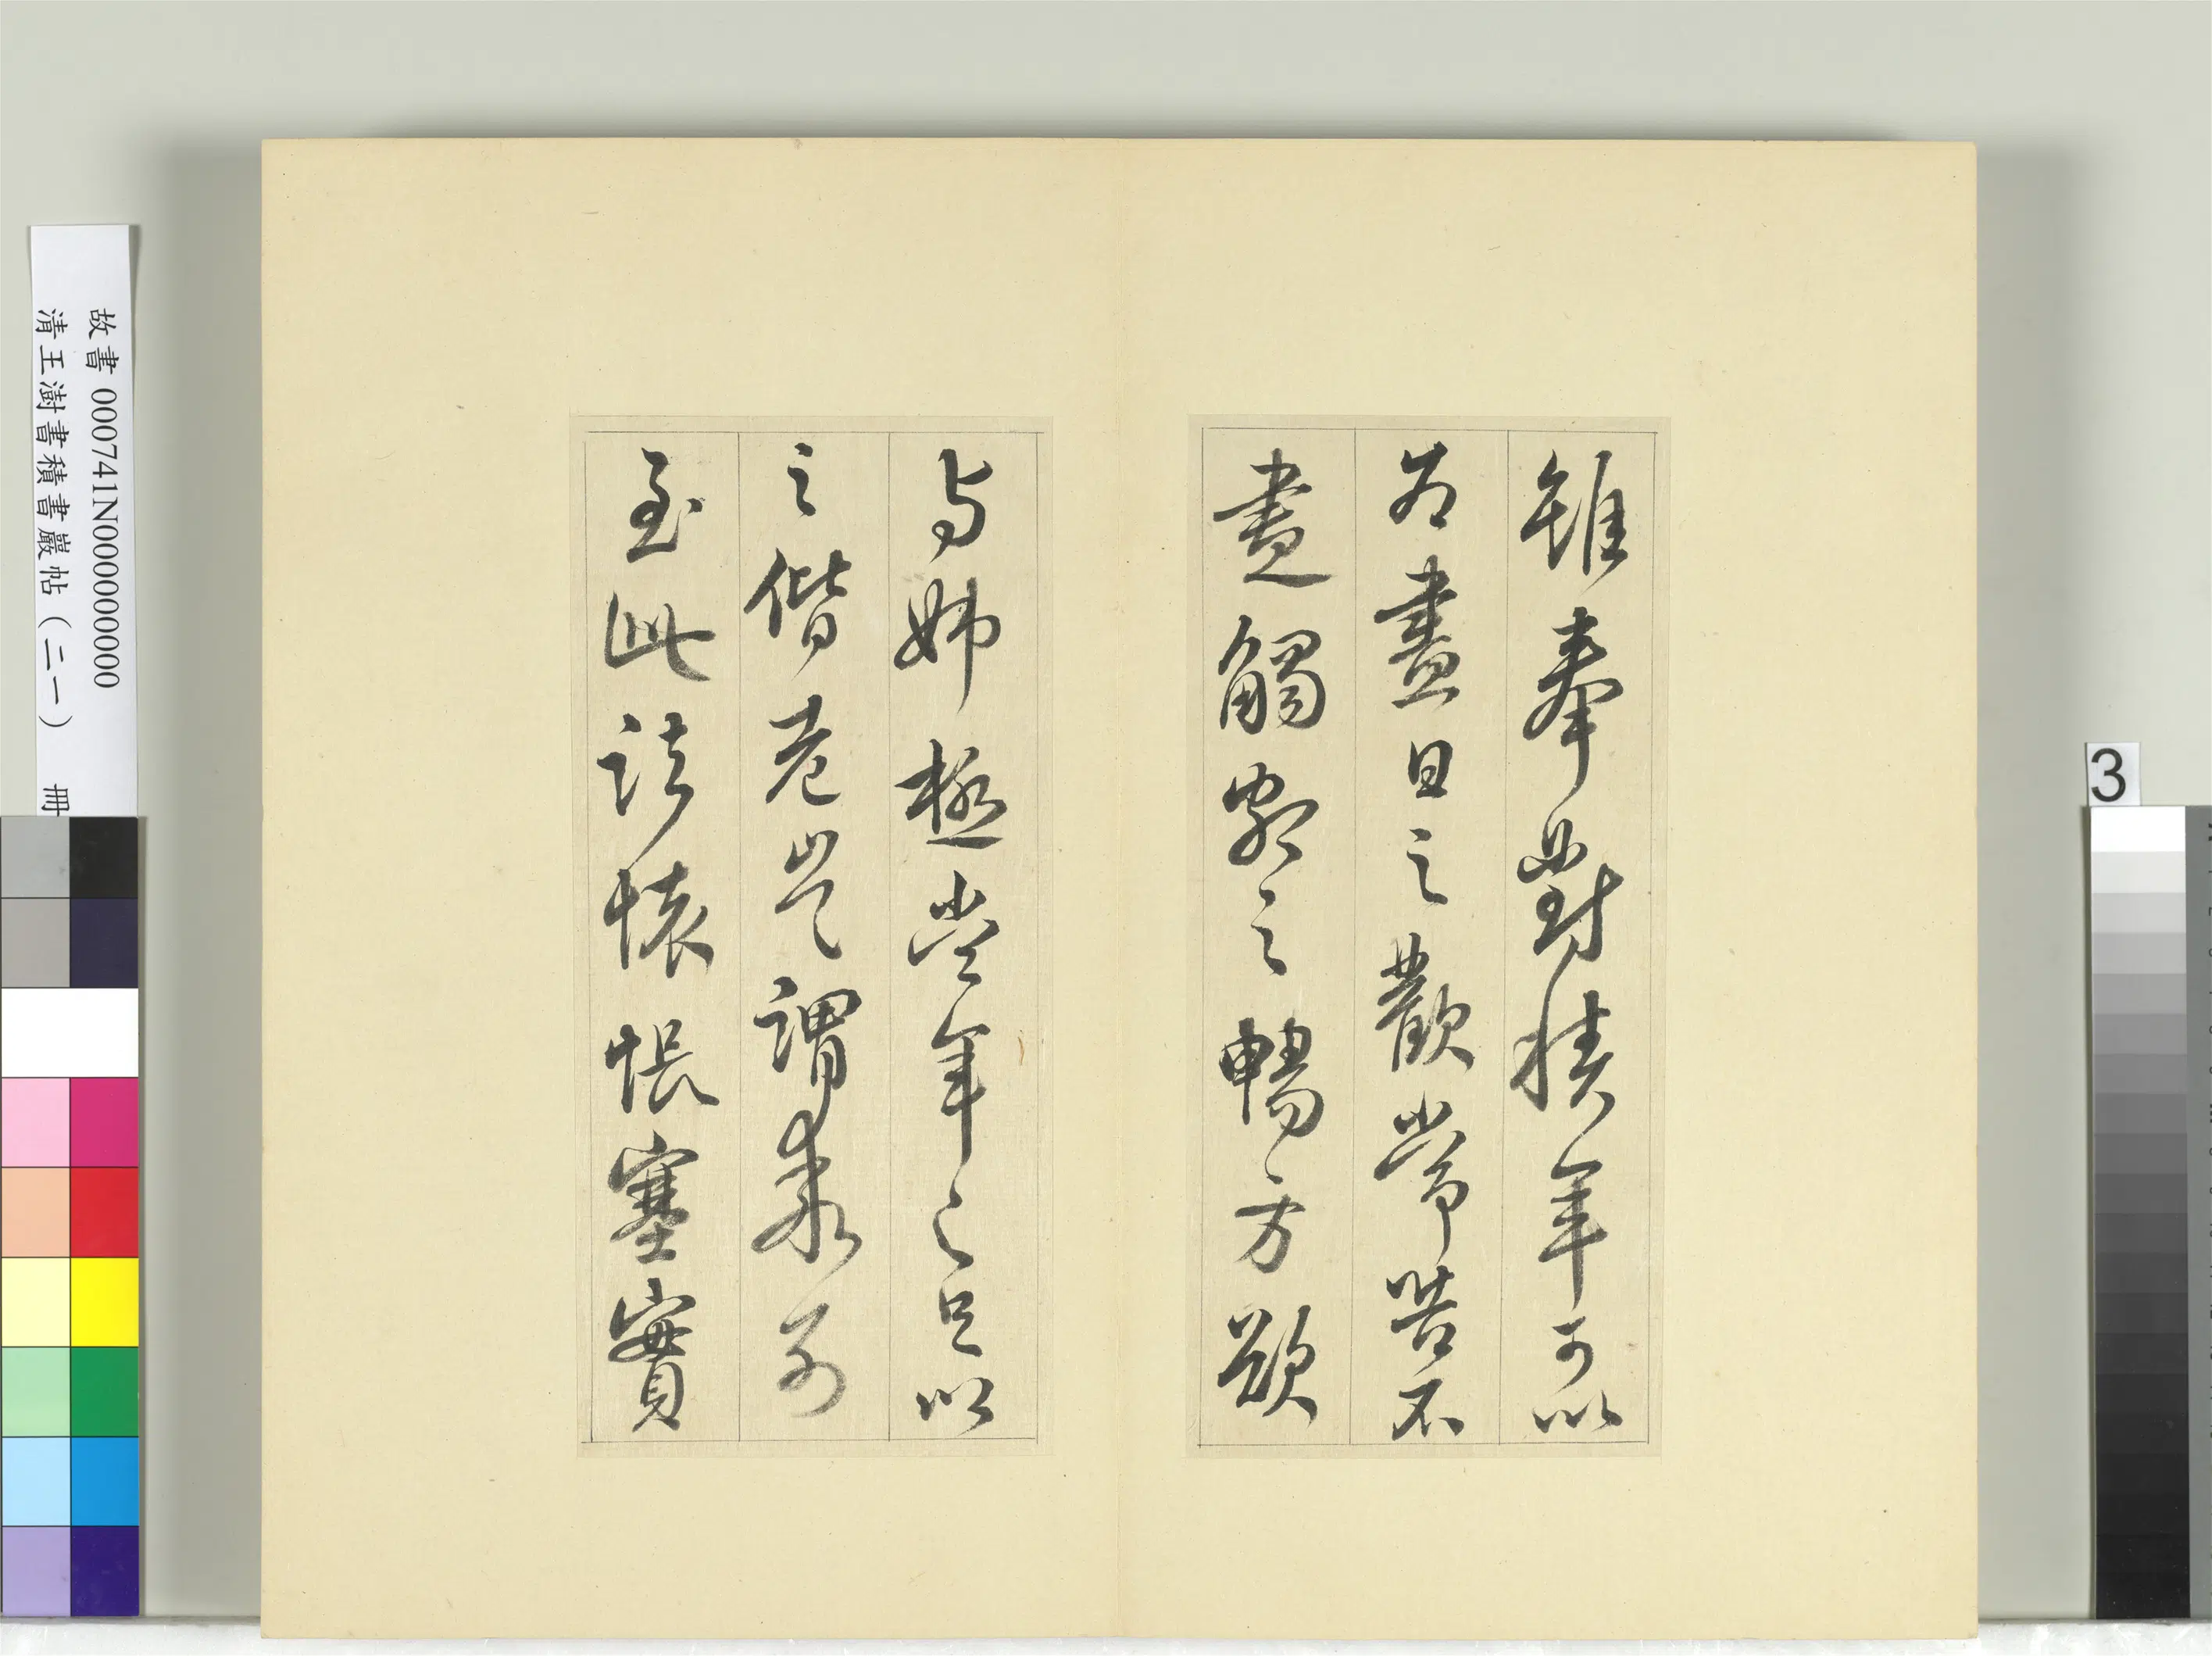 雖奉對積年可以
為盡日之歡常苦不
盡觸額之暢方欲
與姊極當年之疋以
之偕老豈謂乖別
至此諸懷悵塞實
故書 000741N000000000
清王澍書積書巖帖(二一) 冊
3